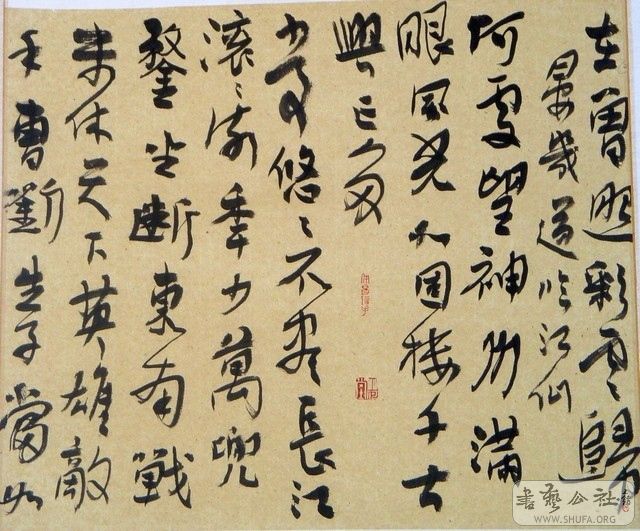 在曾照彩雲歸
晏幾道臨江仙
何處望神州滿
眼風光北固樓千古
興亡多
少事悠〻不盡長江
滾〻流年少萬兜
鍪坐斷東南戰
未休天下英雄敵
手曹劉生子當如
書藝公社
WWW.SHUFA.ORG